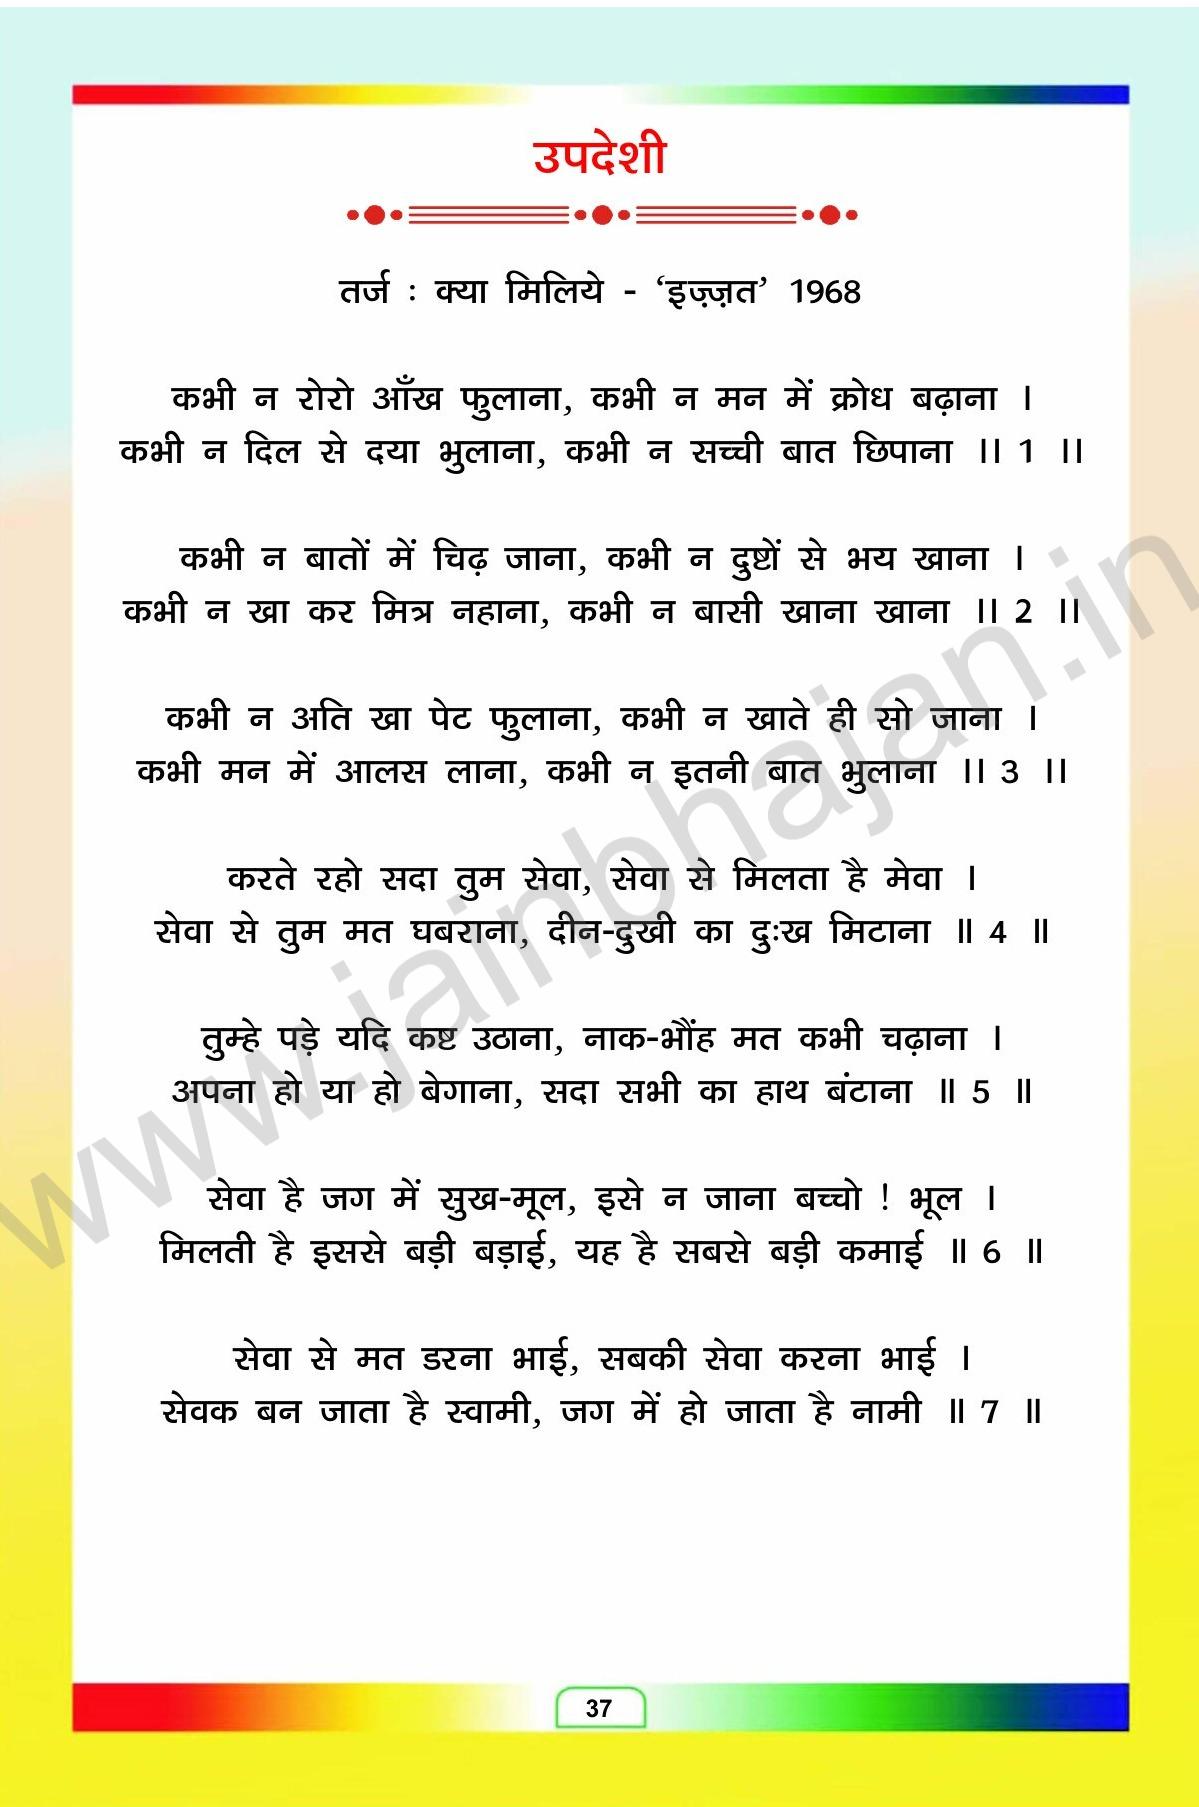 उपदेशी
तर्ज : क्या मिलिये - ‘इज़्ज़त’ 1968
कभी न रोरो आँख फुलाना, कभी न मन में क्रोध बढ़ाना ।
कभी न दिल से दया भुलाना, कभी न सच्ची बात छिपाना ।। 1 ।।
कभी न बातों में चिढ़ जाना, कभी न दुष्टों से भय खाना ।
कभी न खा कर मित्र नहाना, कभी न बासी खाना खाना ।। 2 ।।
कभी न अति खा पेट फुलाना, कभी न खाते ही सो जाना ।
कभी मन में आलस लाना, कभी न इतनी बात भुलाना ।। 3 ।।
करते रहो सदा तुम सेवा, सेवा से मिलता है मेवा ।
सेवा से तुम मत घबराना, दीन-दुखी का दुःख मिटाना ॥ 4 ॥
तुम्हे पड़े यदि कष्ट उठाना, नाक-भौंह मत कभी चढ़ाना ।
अपना हो या हो बेगाना, सदा सभी का हाथ बंटाना ॥ 5 ॥
सेवा है जग में सुख-मूल, इसे न जाना बच्चो ! भूल ।
मिलती है इससे बड़ी बड़ाई, यह है सबसे बड़ी कमाई ॥ 6 ॥
सेवा से मत डरना भाई, सबकी सेवा करना भाई ।
सेवक बन जाता है स्वामी, जग में हो जाता है नामी ॥ 7 ॥
37
www.jainbhajan.in